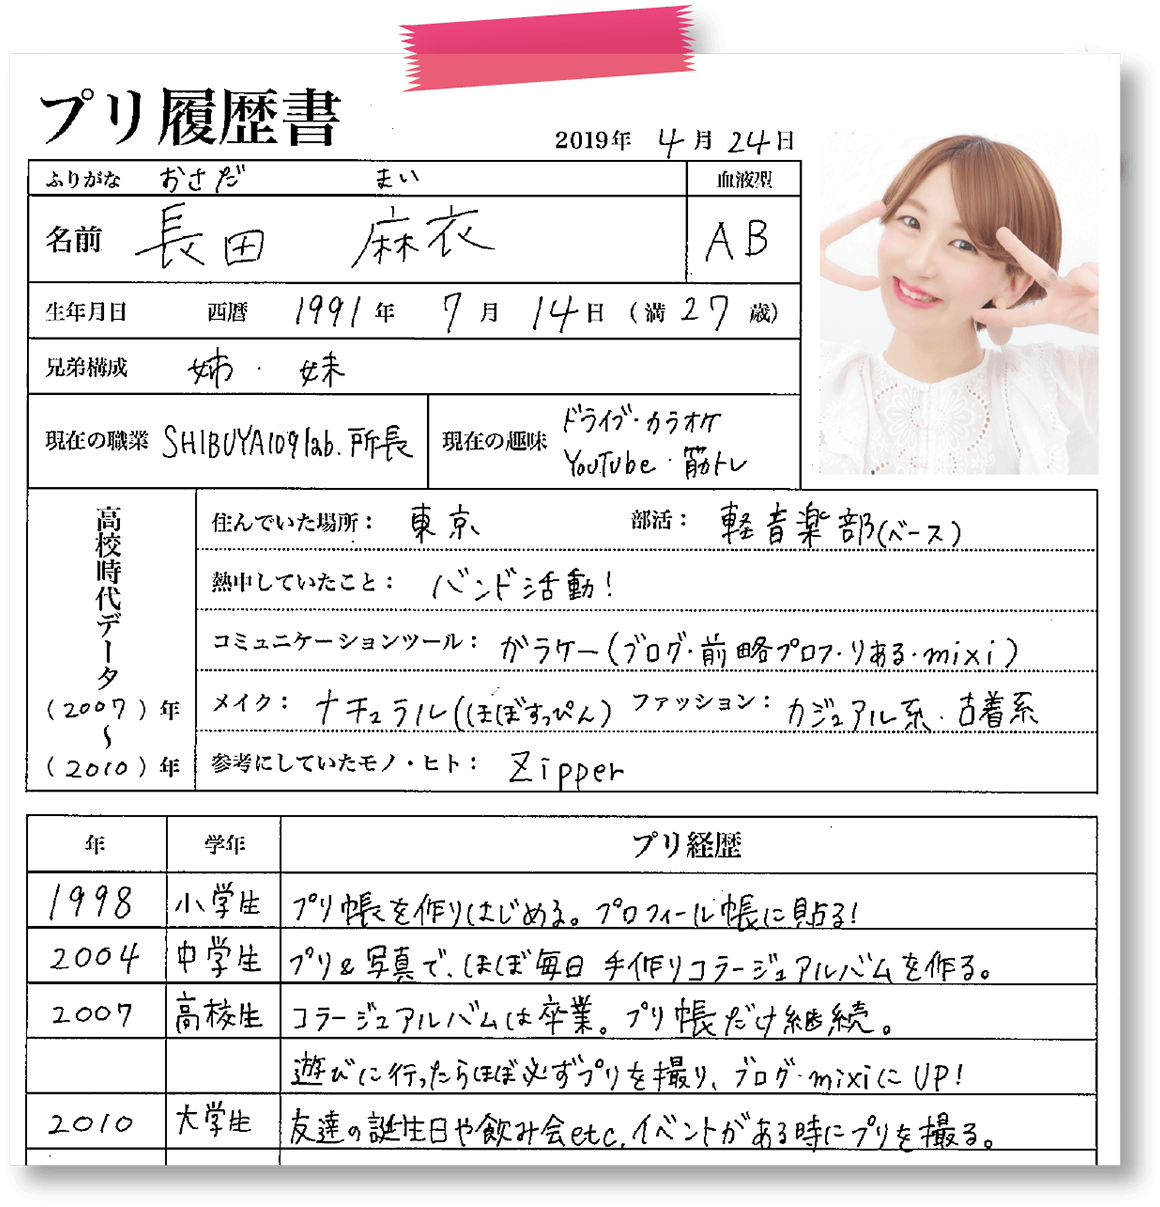 プリ履歴書
2019年 4月 24日
ふりがな おさだ まい 血液型
名前 長田 麻衣 AB
生年月日 西暦 1991年 7月 14日 (満 27 歳)
兄弟構成 姉・妹
現在の職業 SHIBUYA109lab.所長
現在の趣味 ドライブ・カラオケ
YouTube・筋トレ
高校時代データ
(2007)年
〜
(2010)年
住んでいた場所: 東京 部活: 軽音楽部(ベース)
熱中していたこと: バンド活動!
コミュニケーションツール: ガラケー(ブログ・前略プロフ・りある・mixi)
メイク: ナチュラル(ほぼすっぴん) ファッション: カジュアル系・古着系
参考にしていたモノ・ヒト: Zipper
年 学年 プリ経歴
1998 小学生 プリ帳を作りはじめる。プロフィール帳に貼る!
2004 中学生 プリ&写真で、ほぼ毎日 手作りコラージュアルバムを作る。
2007 高校生 コラージュアルバムは卒業。プリ帳だけ継続。
遊びに行ったらほぼ必ずプリを撮り、ブログ・mixiにUP!
2010 大学生 友達の誕生日や飲み会etc,イベントがある時にプリを撮る。